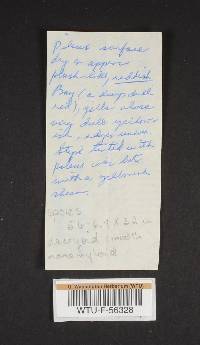 Pileus surface
dry & appears
plush-like, reddish
Bay (a deep dull
red), gills close
very dull yellow
edges uneven
Stipe tinted with the
pileus color but
with a yellowish
sheen.
spores
5.6-6.4 X 3.2
U. Washington Herbarium (WTU)
WTU-F-56328